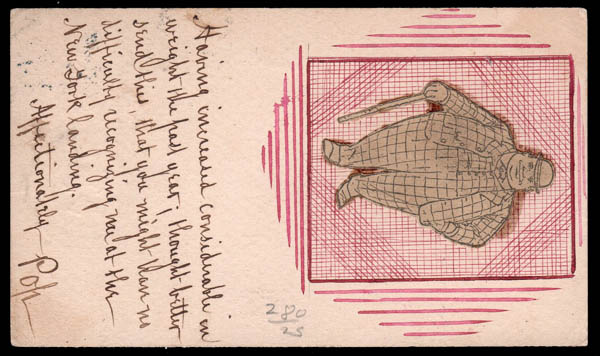 Having increased considerable in
weight the past year, thought better
send this, that you might have no
difficulty recognizing me at the
New York landing.
Affectionately Pop
280
25